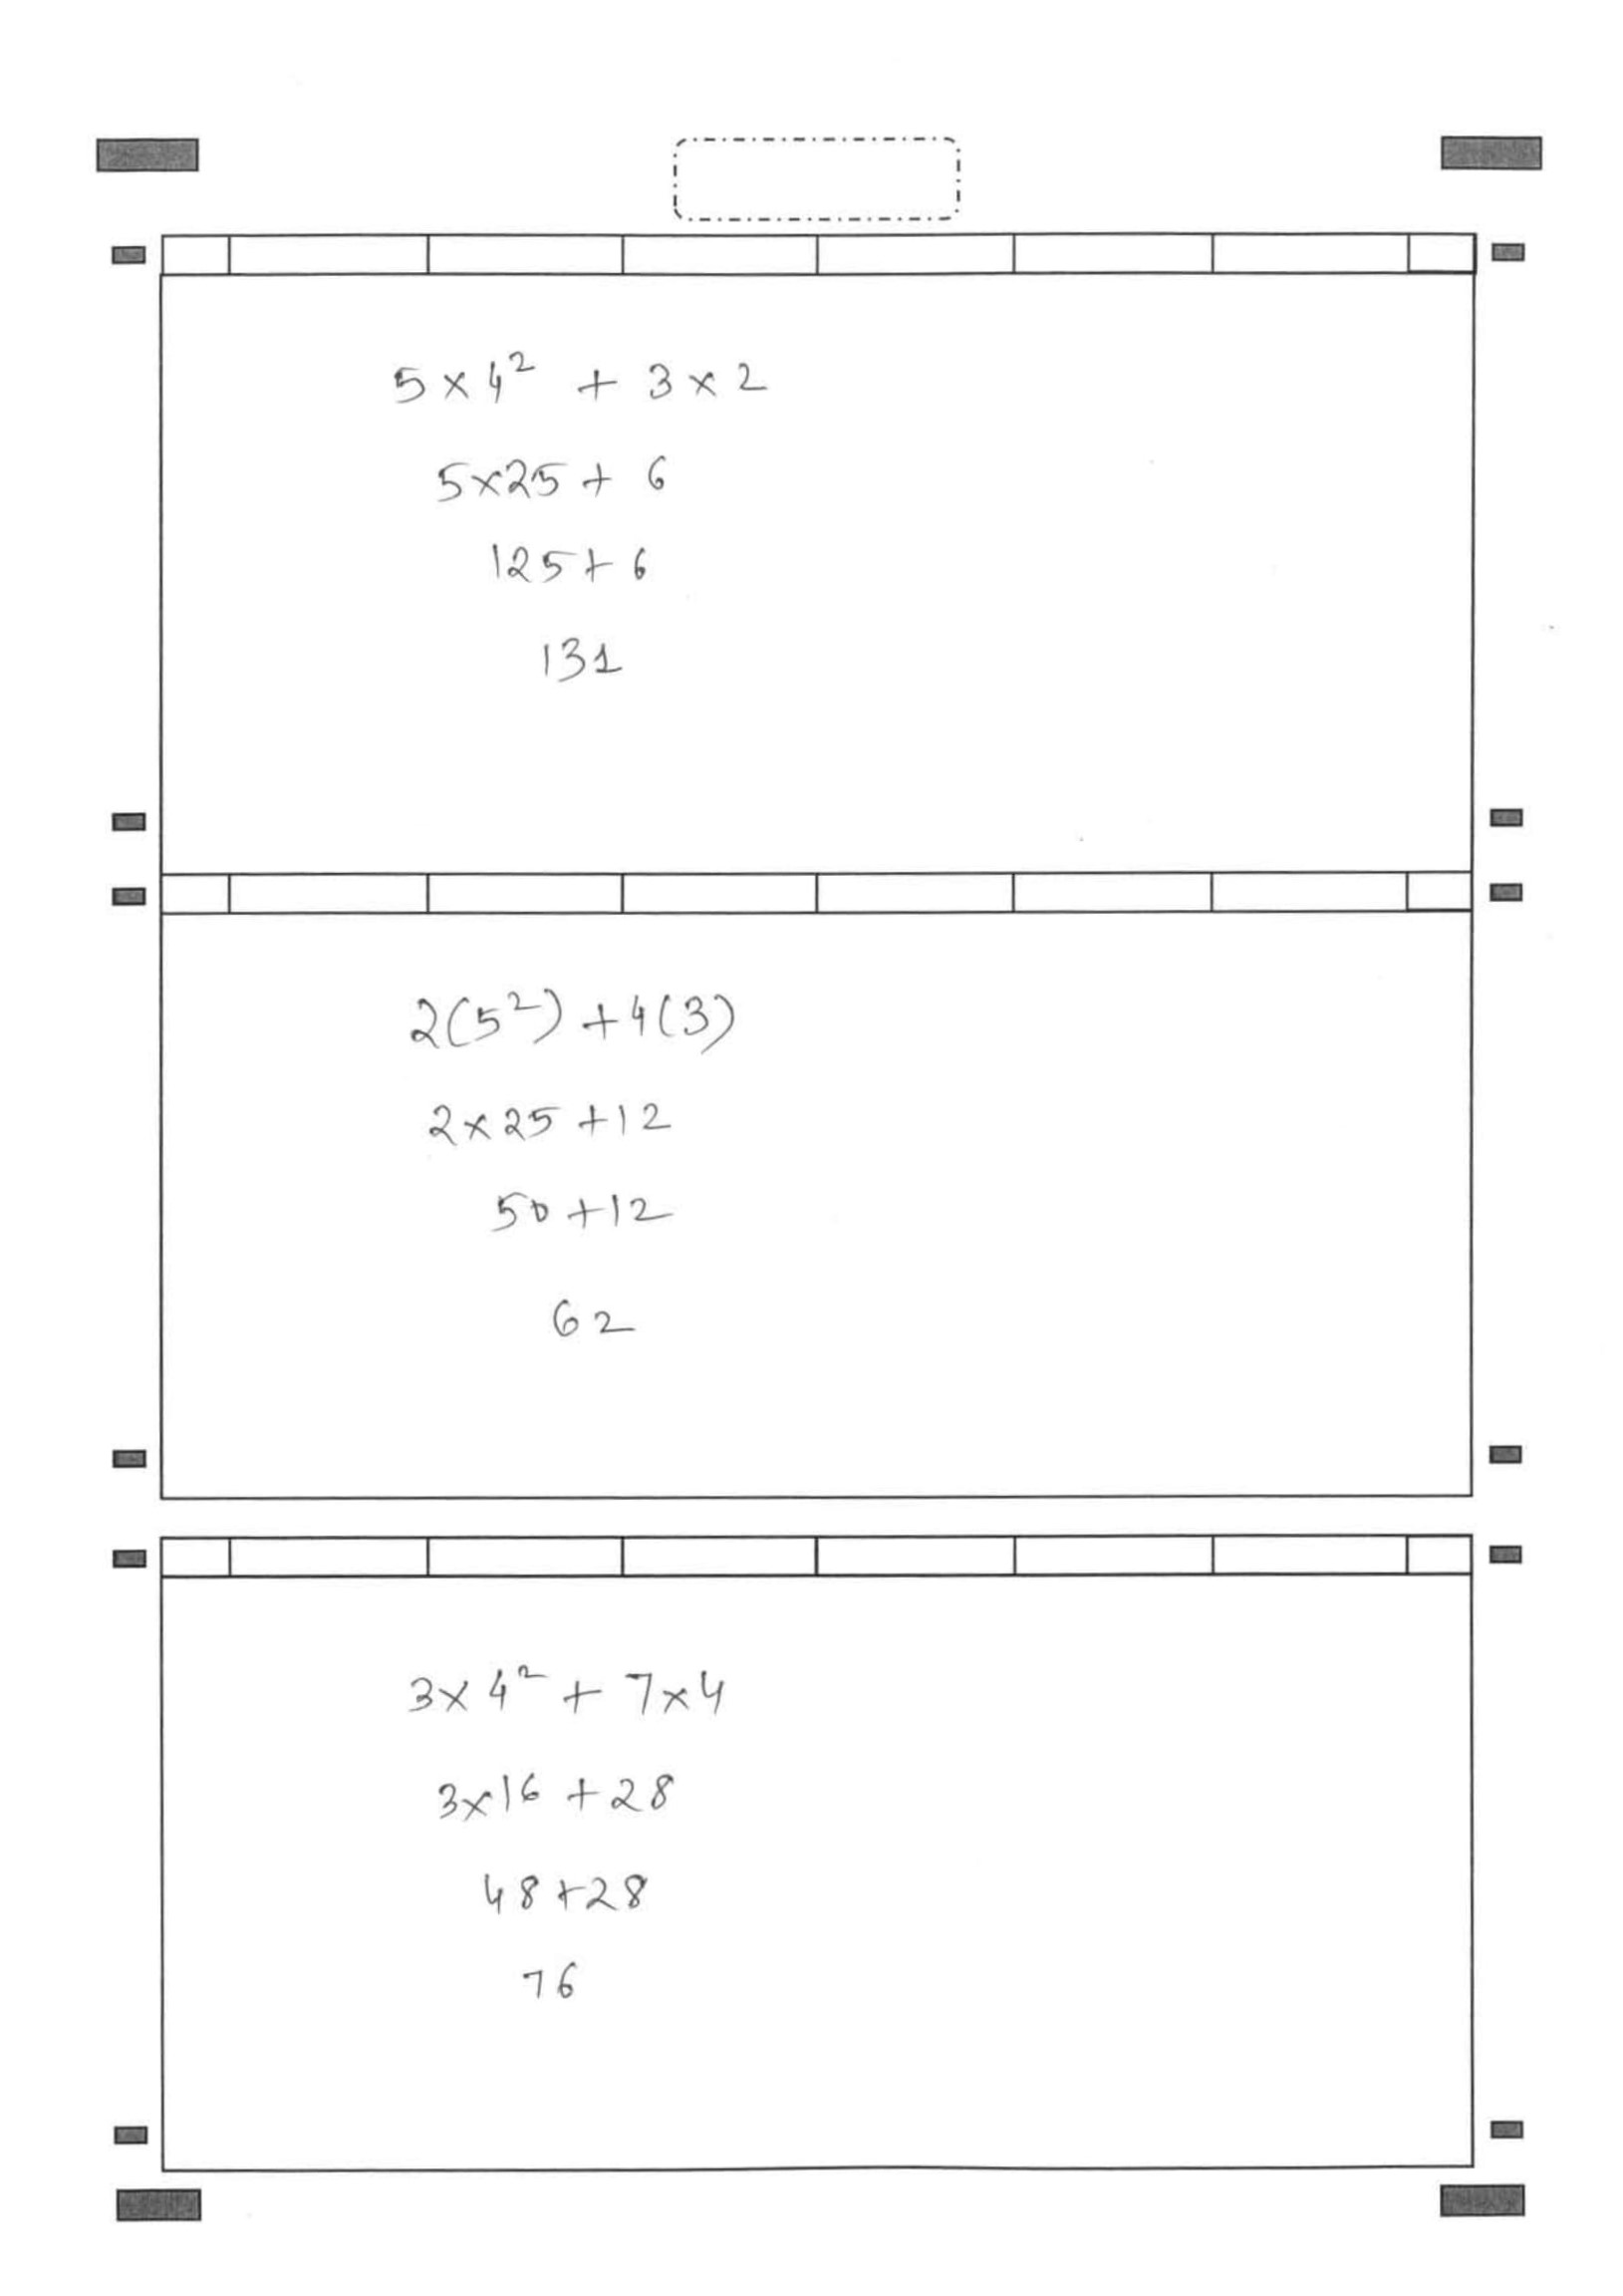 5 × 4² + 3 × 2
5×25 + 6
125 + 6
131
2(5²) + 4(3)
2 × 25 + 12
50 + 12
62
3 × 4² + 7 × 4
3×16 + 28
48 + 28
76